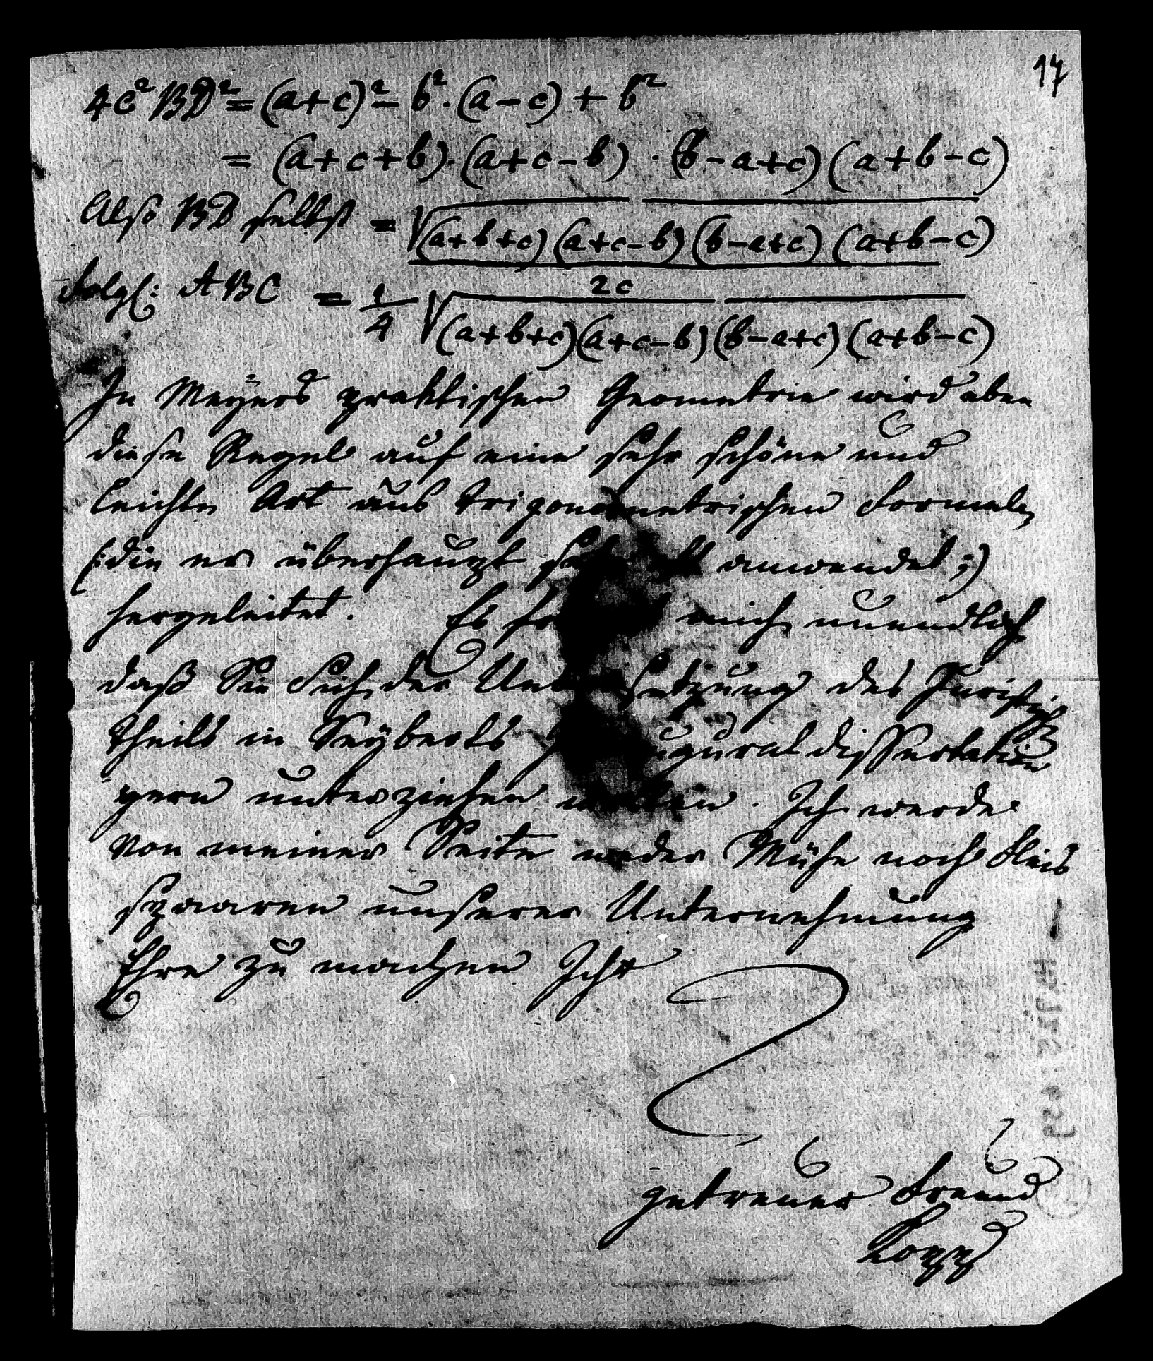 17
4c² BD² = (a+c)² - b². (a-c) + b²
= (a+c+b). (a+c-b) . (b-a+c) (a+b-c)
Also BD selbst = √(a+b+c) (a+c-b) (b-a+c) (a+b-c)
2c
Folgl: ABC = 1/4 √(a+b+c) (a+c-b) (b-a+c) (a+b-c)
In Meÿers praktischen Geometrie wird eben
diese Regel auf eine sehr schöne und
leichte Art aus trigonometrischen Formeln
(:die er überhaupt anwendet:)
hergeleitet. Es mich unendlich
daß Sie Sich der des
theils in Seÿberts dissertation
gern unterziehen wollen. Ich werde
von meiner Seite weder Mühe noch Fleis
spaaren unserer Unternehmung
Ehre zu machen Ihr
getreuer Freund
Kopp